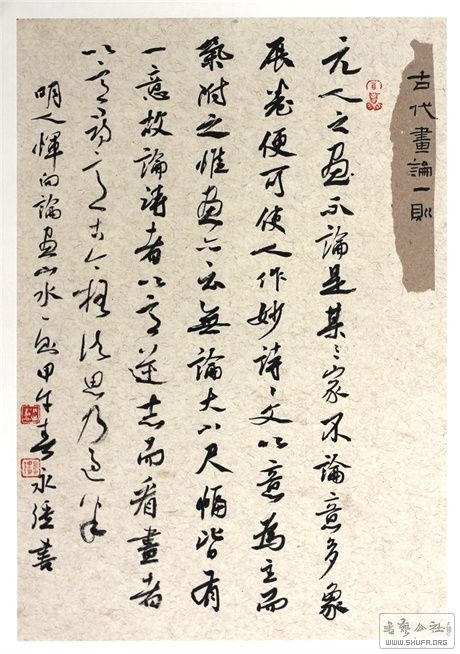 古代畫論一則
元人之畫不論是某〻家不論意多象
展卷便可使人作妙詩〻文以意為主而
氣附之惟畫亦云無論大小尺幅皆有
一意故論詩者以意逆志而看畫者
以意尋意古今格法思乃過半
明人惲向論畫山水一則甲午春永書
書藝公社
WWW.SHUFA.ORG